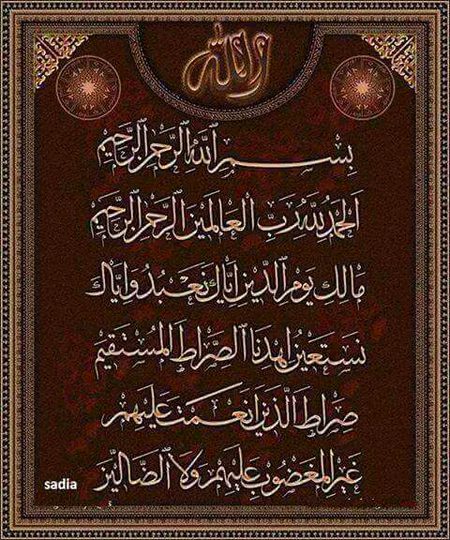 بِسْمِ ٱللَّهِ ٱلرَّحْمٰنِ ٱلرَّحِيْمِ
اَلْحَمْدُ لِلّٰهِ رَبِّ الْعَالَمِيْنَ الرَّحْمٰنِ الرَّحِيْمِ
مَالِكِ يَوْمِ الدِّيْنِ اِيَّاكَ نَعْبُدُ وَاِيَّاكَ
نَسْتَعِيْنُ اِهْدِنَا الصِّرَاطَ الْمُسْتَقِيْمَ
صِرَاطَ الَّذِيْنَ اَنْعَمْتَ عَلَيْهِمْ
غَيْرِ الْمَغْضُوْبِ عَلَيْهِمْ وَلَا الضَّالِّيْنَ
sadia